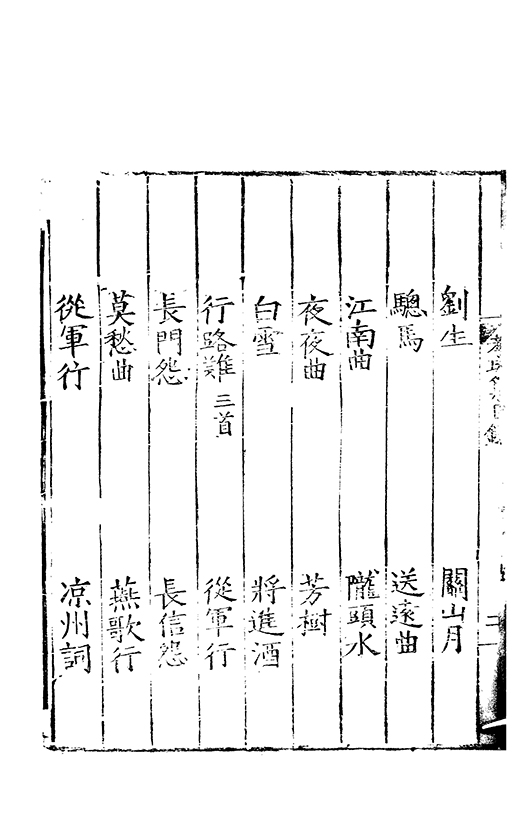 劉生 關山月
驄馬 送遠曲
江南曲 隴頭水
夜夜曲 芳樹
白雪 將進酒
行路難三首 從軍行
長門怨 長信怨
莫愁曲 燕歌行
從軍行 凉州詞